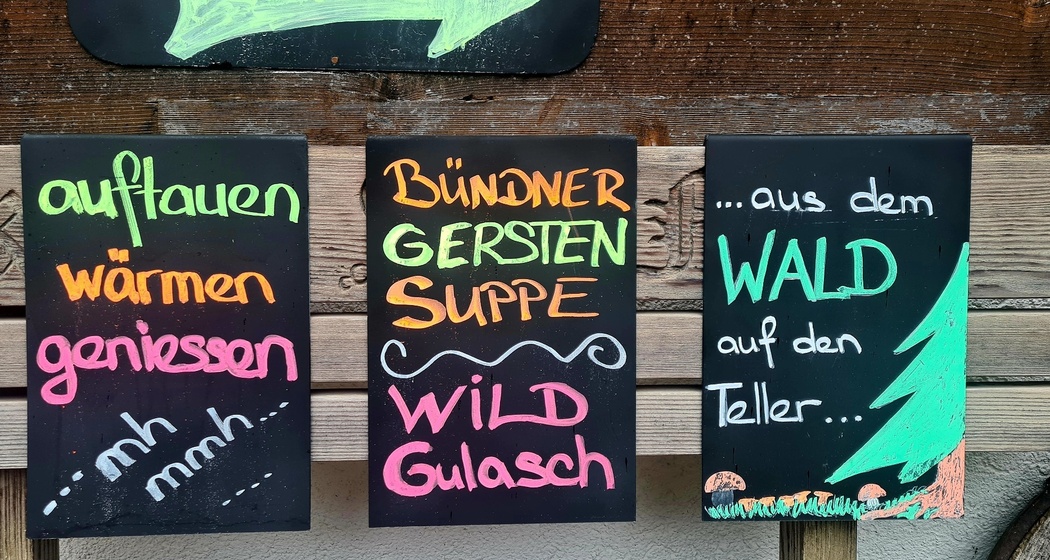 auftauen
wärmen
geniessen
... mh
mmh...
...
BÜNDNER
GERSTEN
SUPPE
WiLD
Gulasch
...aus dem
WALD
auf den
Teller...